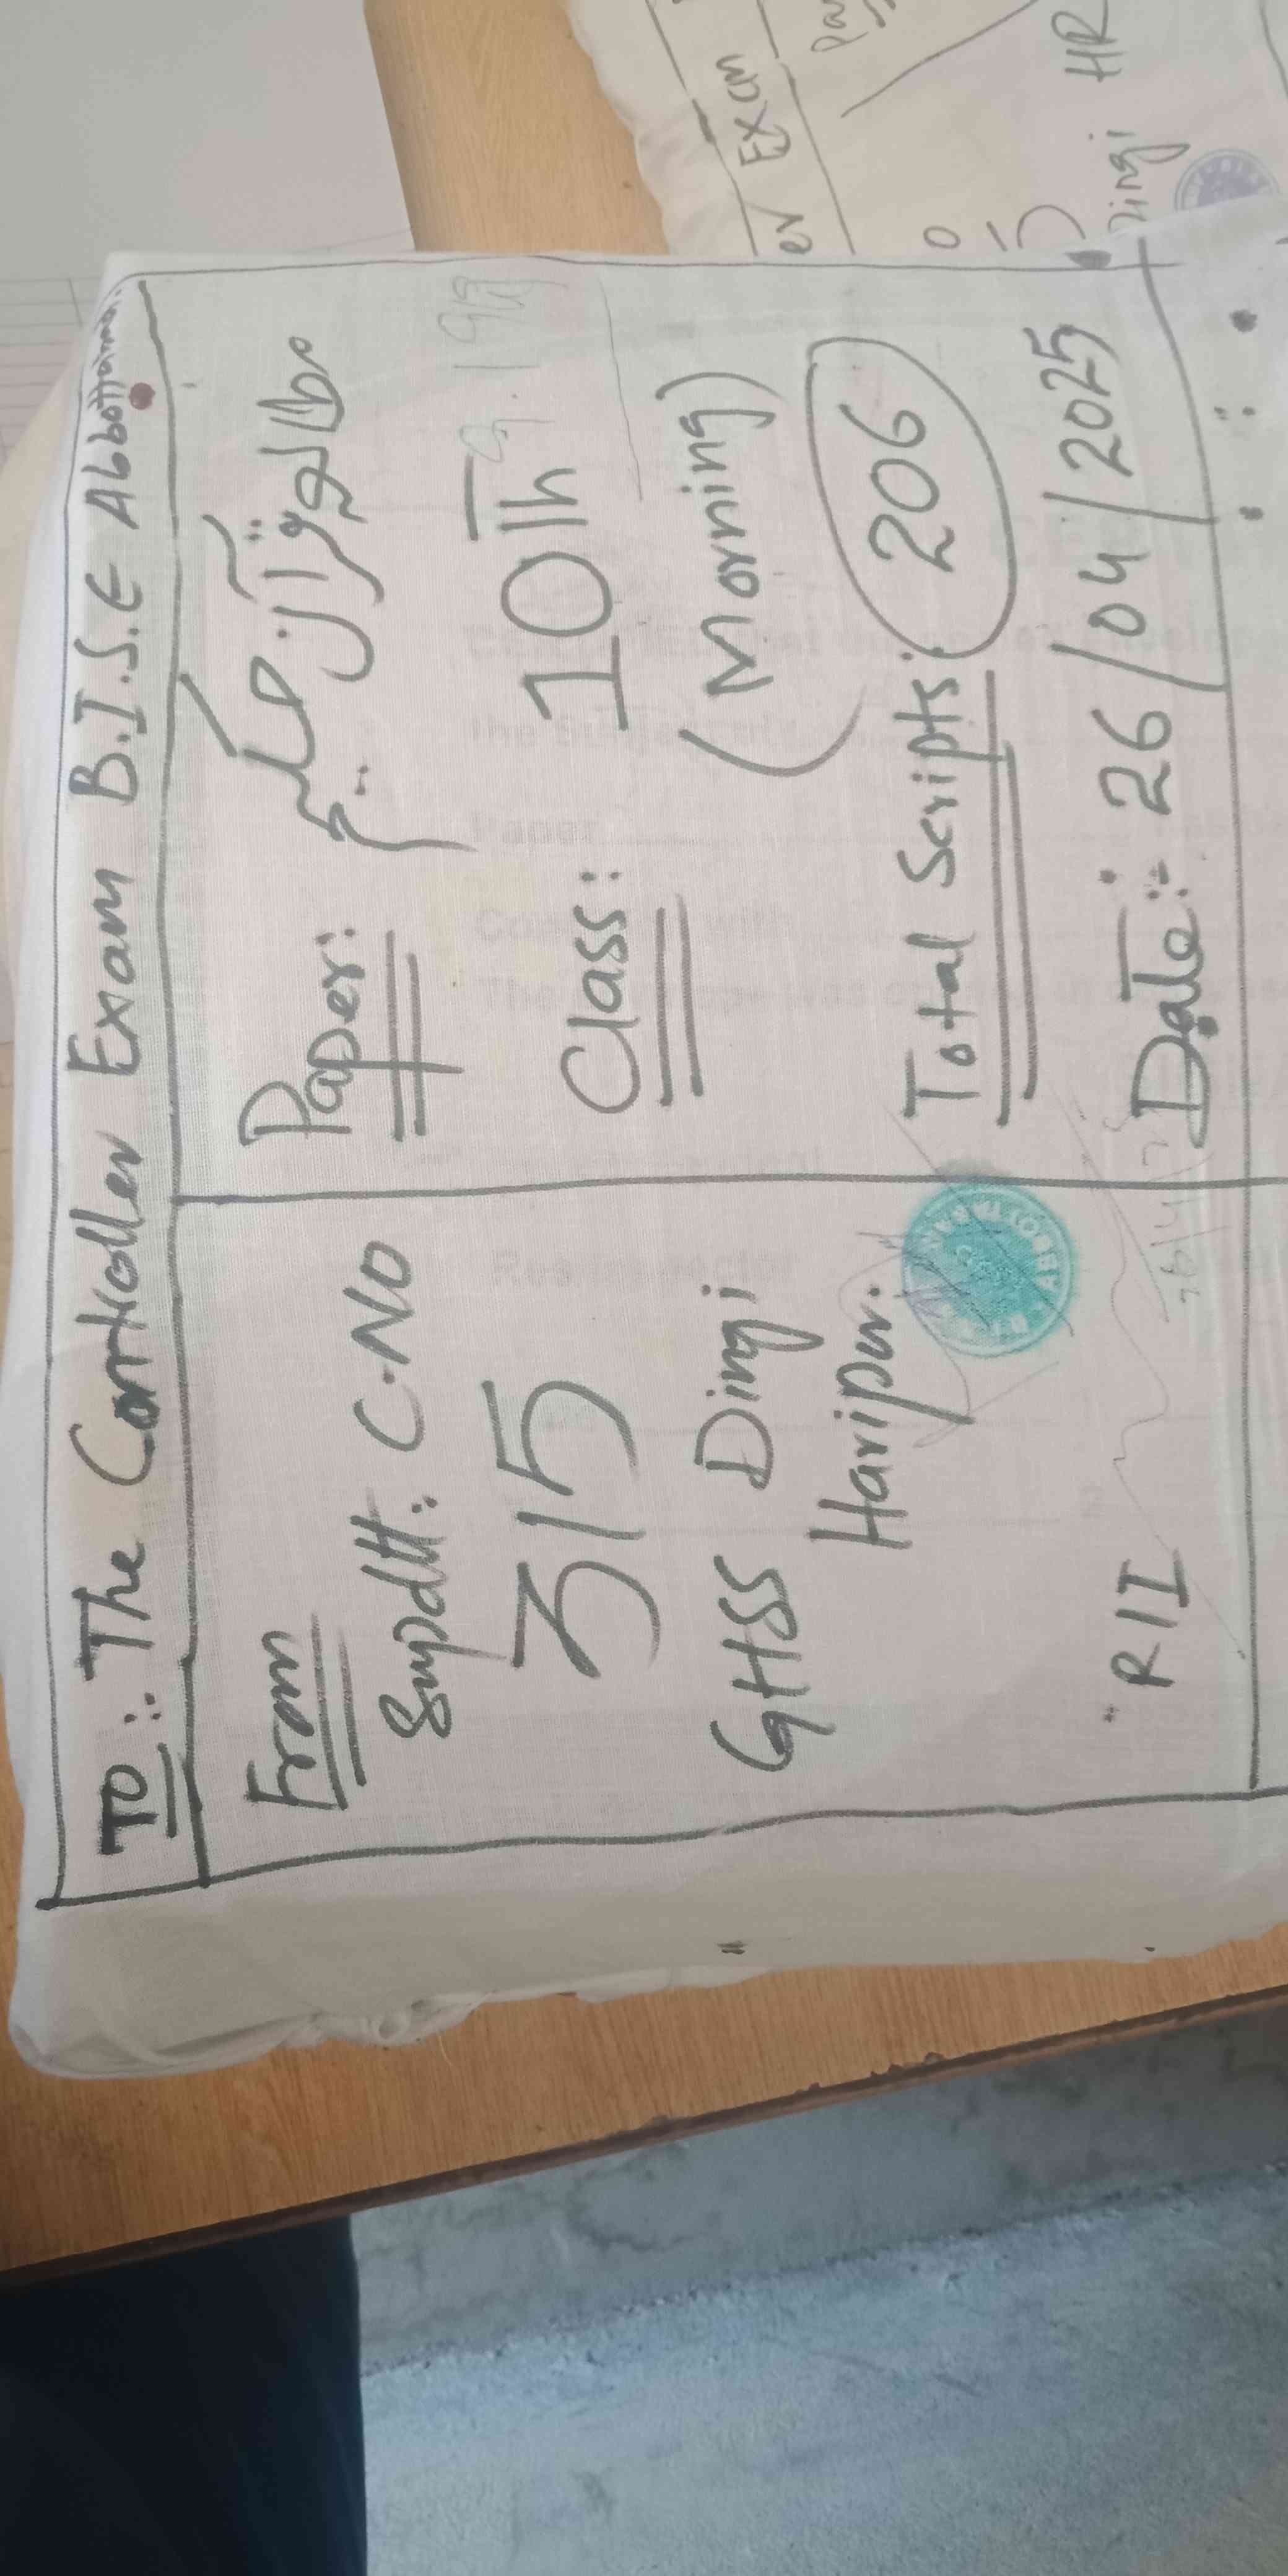 TO:: The Controller Exam B.I.S.E Abbottabad.
From
Supdtt: C.No
315
GHSS Dingi
Haripur.
RII
26/4/25
Paper: مطالعہ قرآن حکیم
Class: 10th
(Morning)
Total Scripts: 206
Date:- 26/04/2025
er Exam
Dingi HR